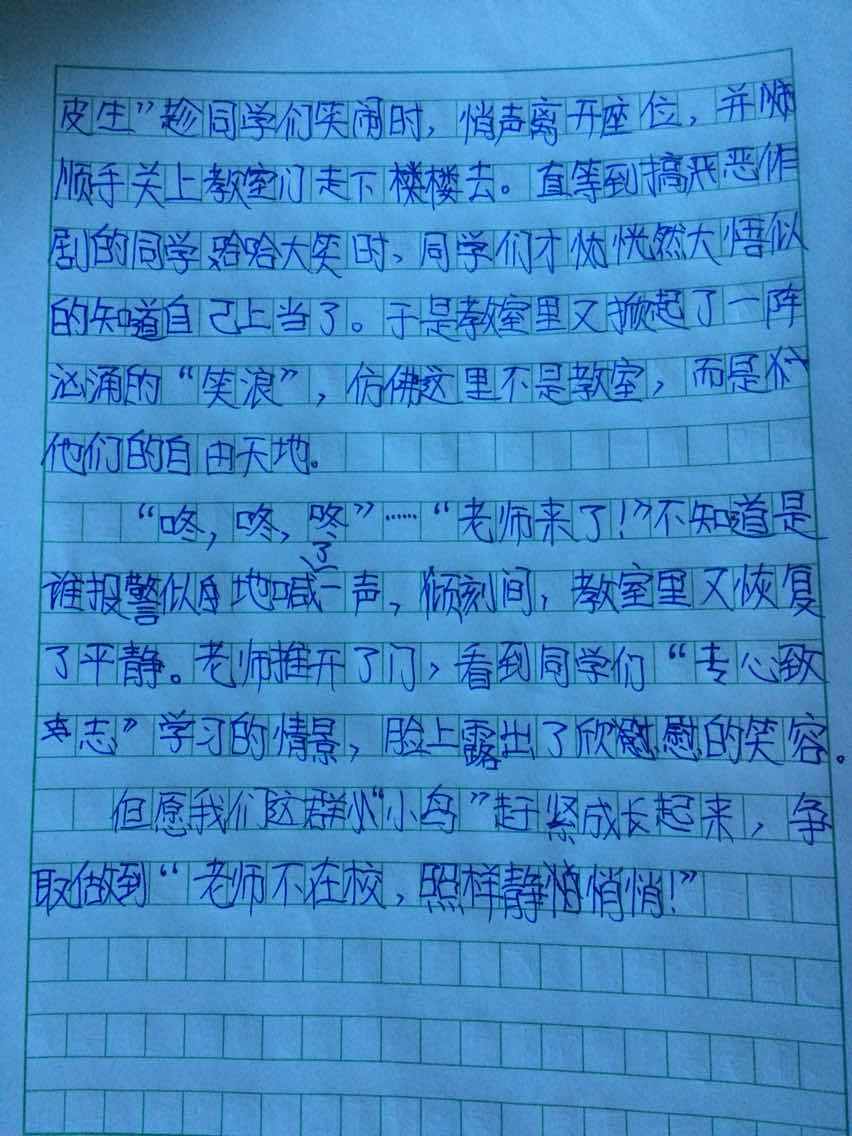 皮生”趁同学们笑闹时，悄声离开座位，并
顺手关上教室门走下楼楼去。直等到搞恶恶作
剧的同学哈哈大笑时、同学们才恍恍然大悟似
的知道自己上当了。于是教室里又掀起了一阵
汹涌的“笑浪”，仿佛这里不是教室，而是
他们的自由天地。
“咚，咚，咚”……“老师来了！”不知道是
谁报警似地喊了一声，倾刻间，教室里又恢复
了平静。老师推开了门，看到同学们“专心致
志”学习的情景，脸上露出了欣慰慰的笑容。
但愿我们这群小“小鸟”赶紧成长起来，争
取做到“老师不在校，照样静悄悄悄！”